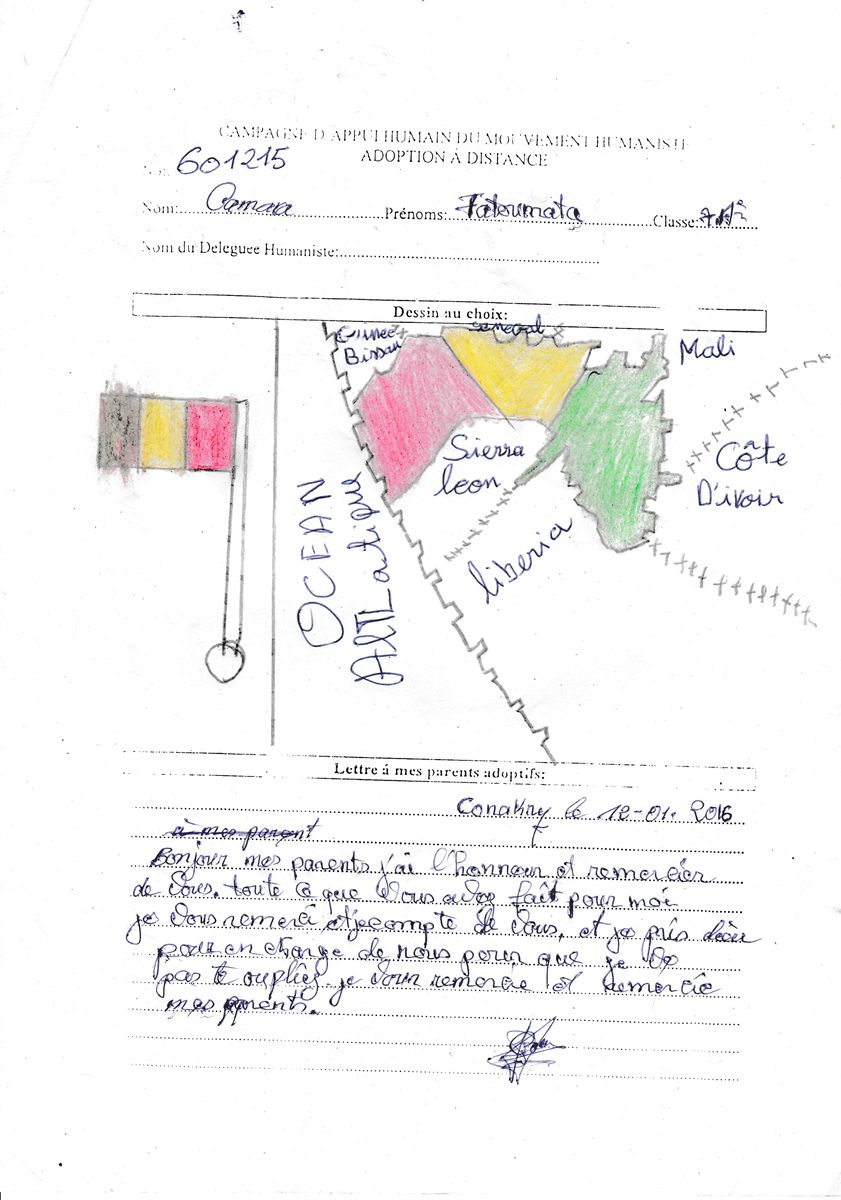 CAMPAGNE D'APPUI HUMAIN DU MOUVEMENT HUMANISTE
ADOPTION À DISTANCE
601215
Nom: Camara Prénoms: Fatoumata Classe:
Nom du Deleguee Humaniste:
Dessin au choix:
Guinee
Bissau
senegal
Mali
Sierra
leon
Côte
D'ivoir
liberia
OCEAN
AltLatique
Lettre á mes parents adoptifs:
Conakry le 12-01-2016
à mes parent
Bonjour mes parents j'ai l'honneur et remercier
de Vous. toute ce que Vous avez fait pour moi
je Vous remerci et je compte de Vous, et je pris
pour en change de nous pour que je
pas je Vous remercie et remercie
mes parents.